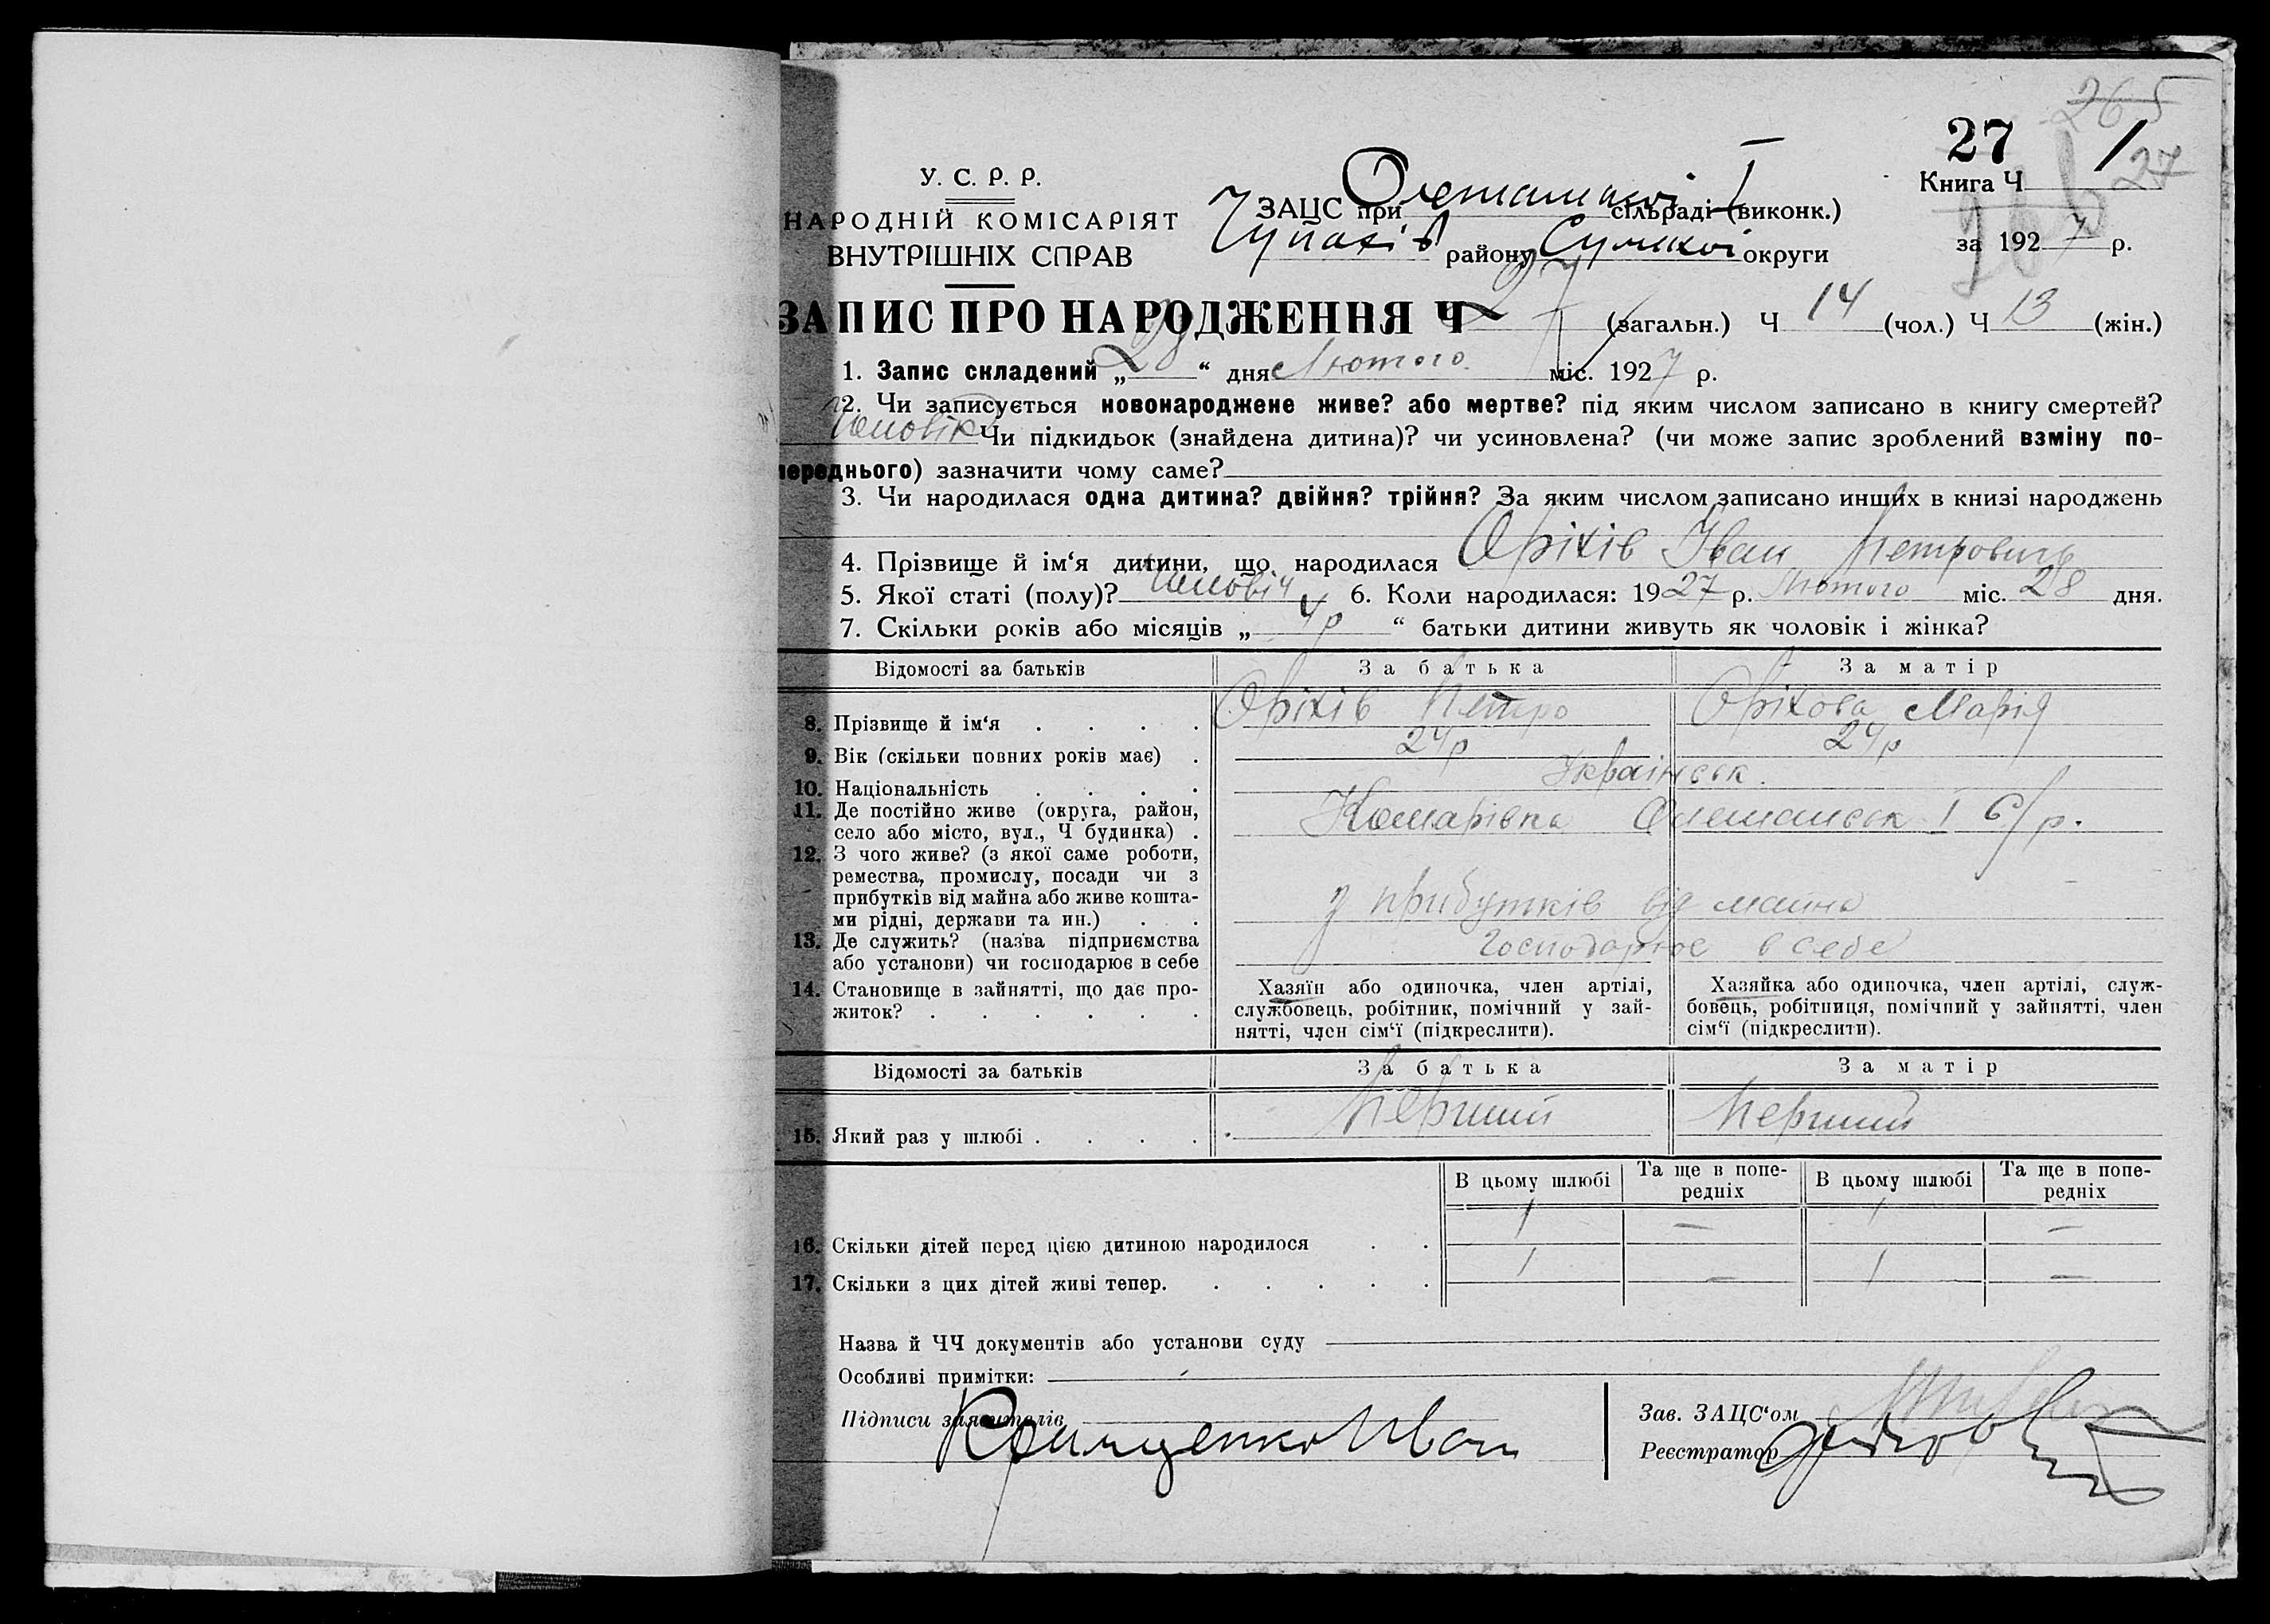 265
27
Книга Ч 1
27
У. С. Р. Р.
НАРОДНІЙ КОМІСАРІЯТ
ВНУТРІШНІХ СПРАВ
ЗАЦС при І сільраді (виконк.)
Чупахів району Сумської округи
за 1927 р.
ЗАПИС ПРО НАРОДЖЕННЯ Ч 27 (загальн.) Ч 14 (чол.) Ч 13 (жін.)
1. Запис складений „28“ дня Лютого міс. 1927 р.
2. Чи записується новонароджене живе? або мертве? під яким числом записано в книгу смертей?
Чи підкидьок (знайдена дитина)? чи усиновлена? (чи може запис зроблений взміну по-
переднього) зазначити чому саме?
3. Чи народилася одна дитина? двійня? трійня? За яким числом записано инших в книзі народжень
4. Прізвище й ім‘я дитини, що народилася Оріхів Іван Петрович
5. Якої статі (полу)? Чоловіч 6. Коли народилася: 1927 р. Лютого міс. 28 дня.
7. Скільки років або місяців „4р“ батьки дитини живуть як чоловік і жінка?
Відомості за батьків За батька За матір
8. Прізвище й ім‘я . . . . Оріхів Петро Оріхова Марія
9. Вік (скільки повних років має) . 24р 24р
10. Національність . . . . Українськ.
11. Де постійно живе (округа, район,
село або місто, вул., Ч будинка) . Комарівка І С/р.
12. З чого живе? (з якої саме роботи,
ремества, промислу, посади чи з
прибутків від майна або живе кошта-
ми рідні, держави та ин.) . . . з прибутків від майна
13. Де служить? (назва підприємства
або установи) чи господарює в себе Господарює в себе
14. Становище в зайнятті, що дає про-
житок? . . . . . .
Хазяїн або одиночка, член артілі,
службовець, робітник, помічний у зай-
нятті, член сім‘ї (підкреслити).
Хазяйка або одиночка, член артілі, служ-
бовець, робітниця, помічний у зайнятті, член
сім‘ї (підкреслити).
Відомості за батьків За батька За матір
15. Який раз у шлюбі . . . . Перший Перший
В цьому шлюбі Та ще в попе-
редніх В цьому шлюбі Та ще в попе-
редніх
16. Скільки дітей перед цією дитиною народилося . . 1 — 1 —
17. Скільки з цих дітей живі тепер. . . . . . 1 — 1 —
Назва й ЧЧ документів або установи суду
Особливі примітки:
Підписи заявителів Іван
Зав. ЗАЦС‘ом
Реєстратор